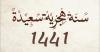 سنة هجرية سعيدة
1441